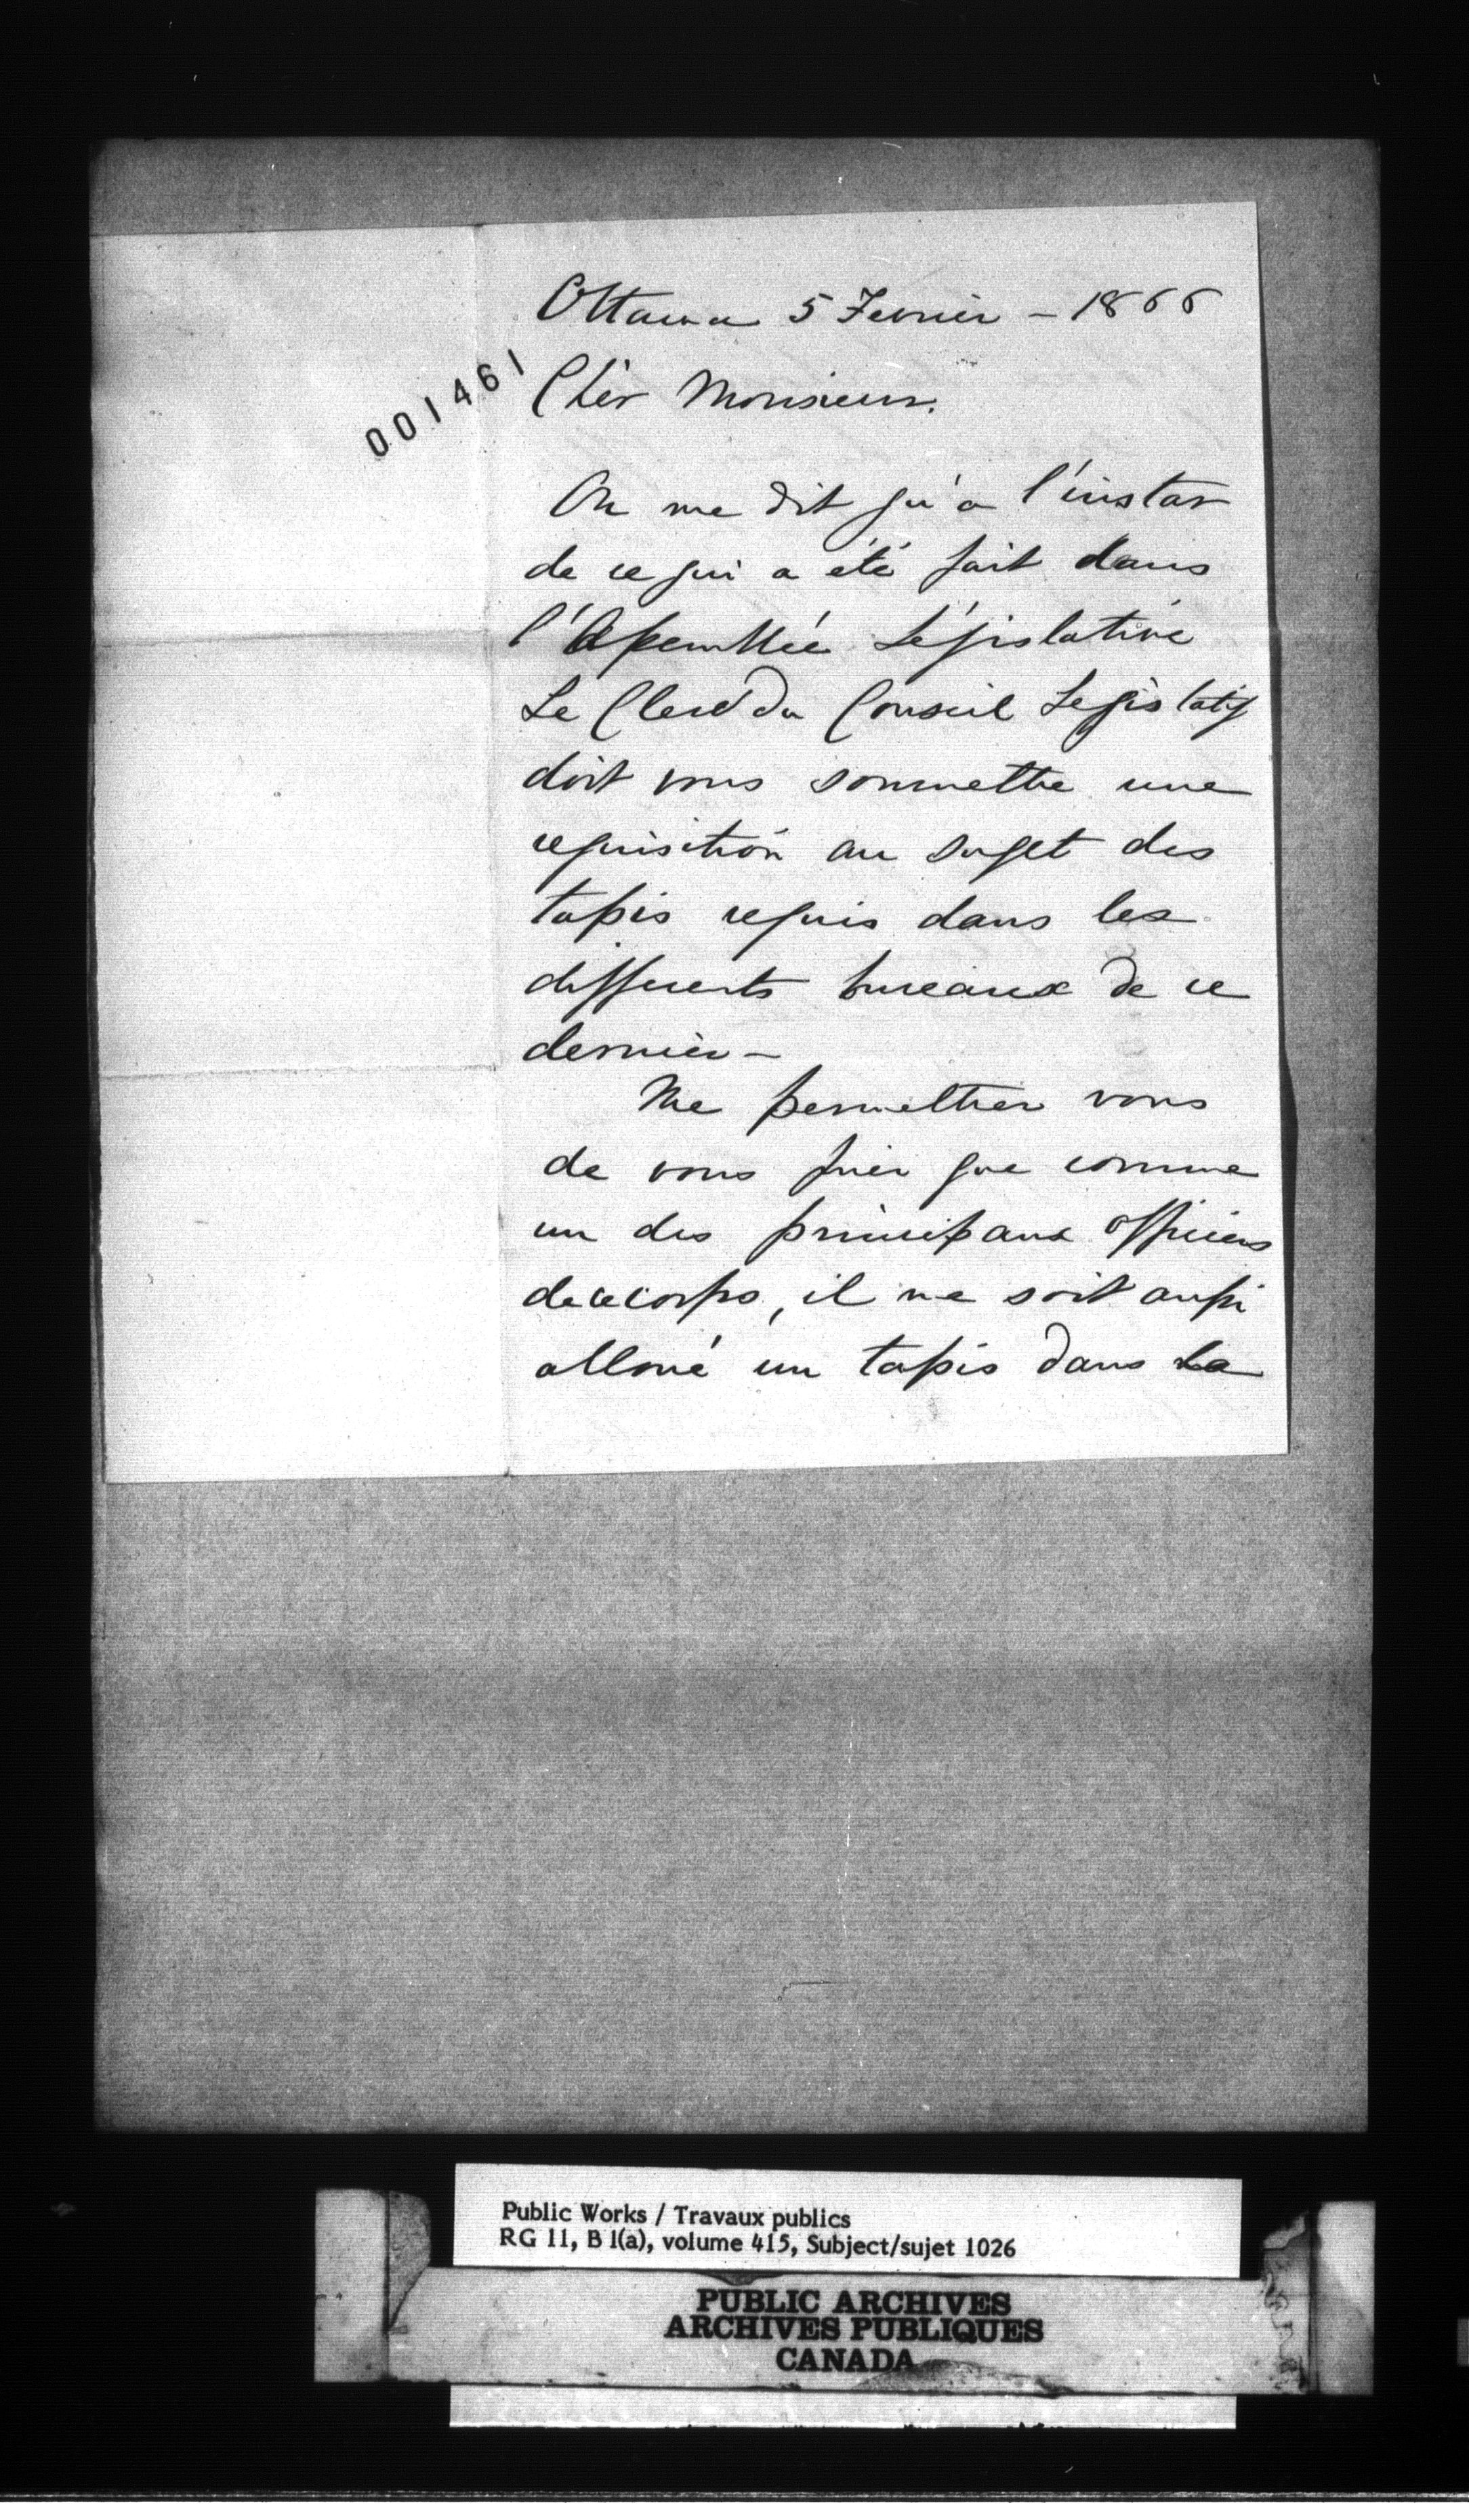 Ottawa 5 Fevrier – 1866
001461
Chèr Monsieur.
On me dit qu'a l'instar
de ce qui a été fait dans
l'Assemblée Législative
Le Clerc du Conseil Legislatif
doit vous soumettre une
requisition au sujet des
tapis requis dans les
differents bureaux de ce
dernier –
Me permettrez vous
de vous prier que comme
un des principaux officiers
de ce corps, il me soit aussi
alloué un tapis dans la
Public Works / Travaux publics
RG 11, B 1(a), volume 415, Subject/sujet 1026
PUBLIC ARCHIVES
ARCHIVES PUBLIQUES
CANADA